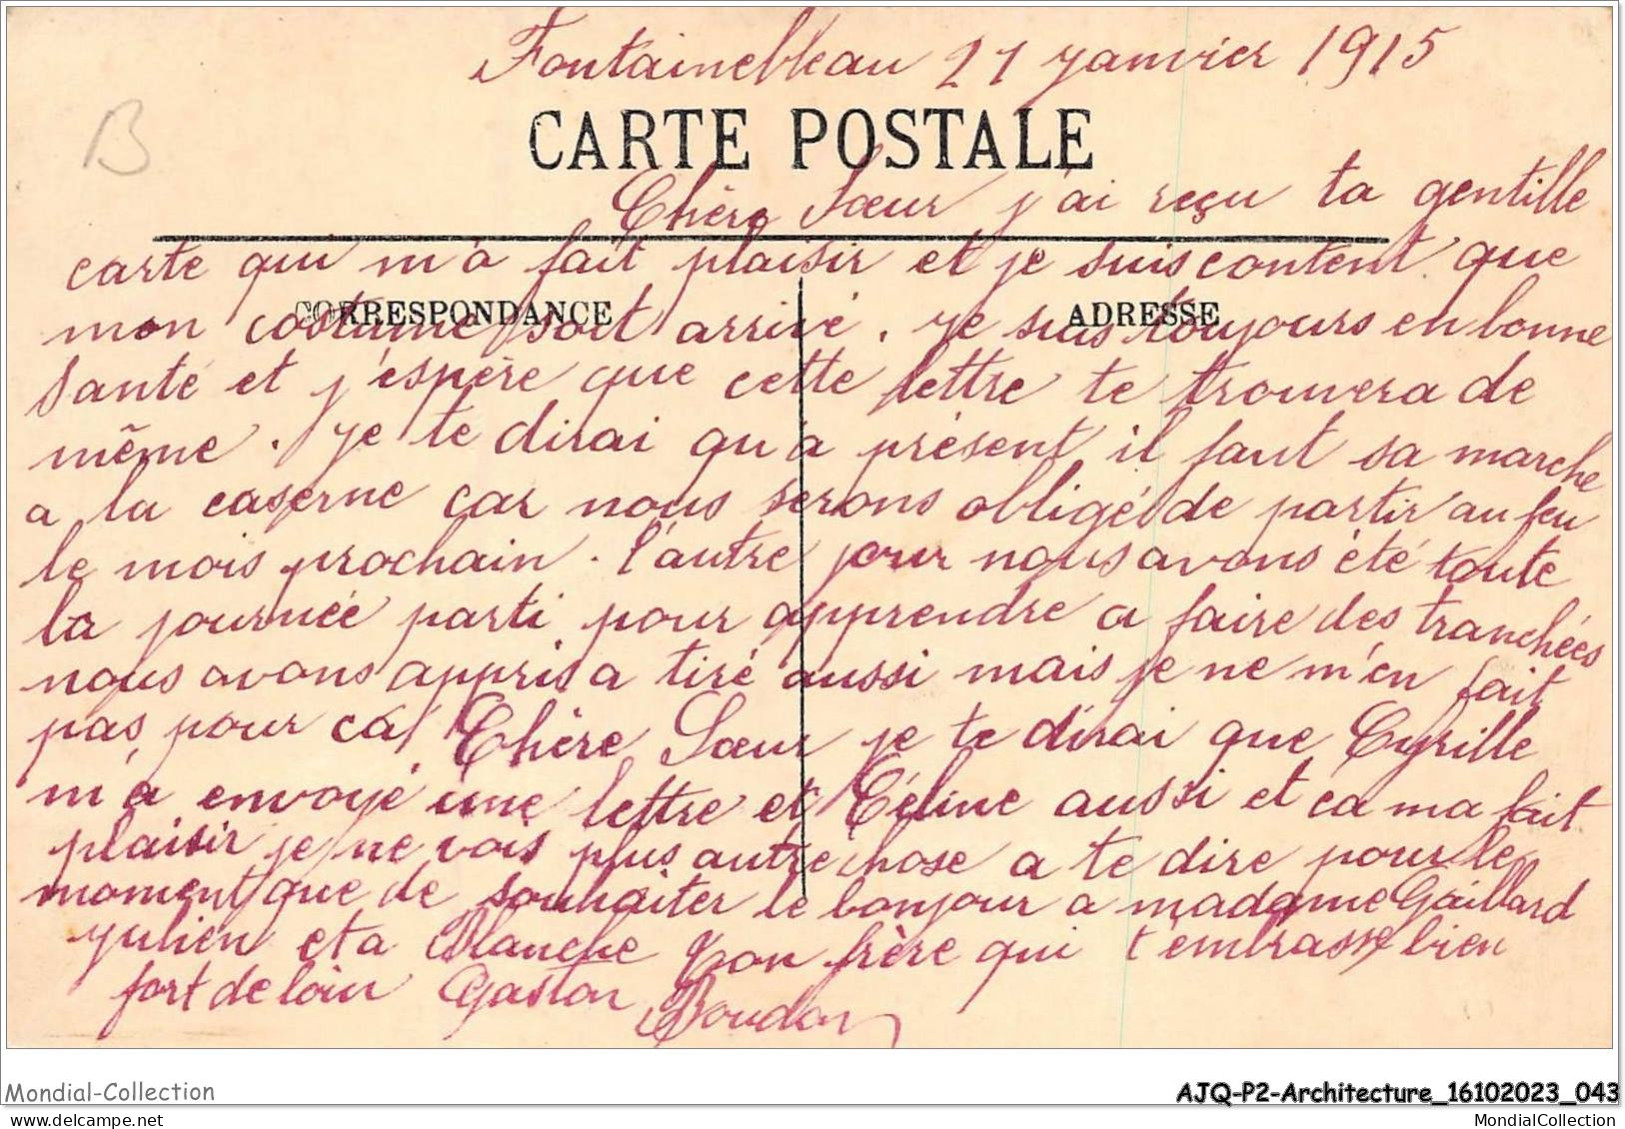 Fontainebleau 21 Janvier 1915
B
CARTE POSTALE
Chère Sœur j'ai reçu ta gentille
carte qui m'a fait plaisir et je suis content que
CORRESPONDANCE
ADRESSE
mon costume soit arrivé. Je suis toujours en bonne
Santé et j'éspère que cette lettre te trouvera de
même. Je te dirai qu'à présent il faut sa marche
a la caserne car nous serons obligé de partir au feu
le mois prochain. l'autre jour nous avons été toute
la journée parti pour apprendre a faire des tranchées
nous avons appris a tiré aussi mais je ne m'en fait
pas pour ca, Chère Sœur je te dirai que Cyrille
m'a envoyé une lettre et Céline aussi et ca ma fait
plaisir je ne vois plus autre chose a te dire pour le
moment que de souhaiter le bonjour a madame Gaillard
Julien et a Blanche Ton frère qui t'embrasse bien
fort de loin Gaston Boudon
Mondial-Collection
AJQ-P2-Architecture_16102023_043
MondialCollection